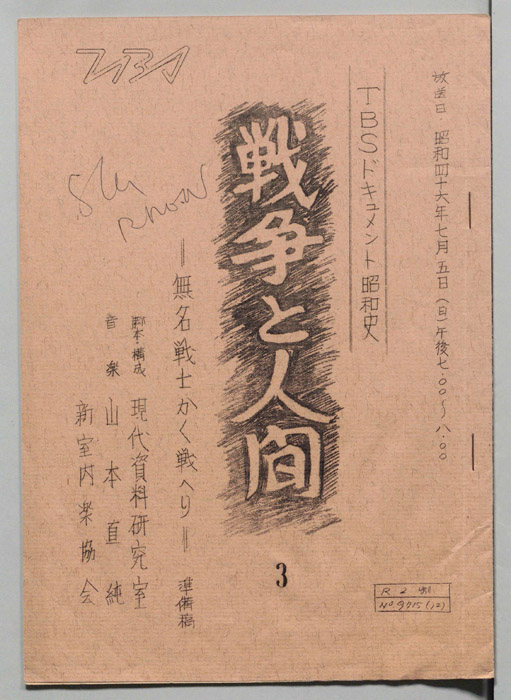 放送日 昭和四十六年七月五日(日)午後七.00〜八.00
TBSドキュメント昭和史
戦争と人間
=無名戦士かく戦へり=
準備稿
脚本・構成 現代資料研究室
音楽 山本直純
新室内楽協会
3
TBS
R 2
No 9715 (12)